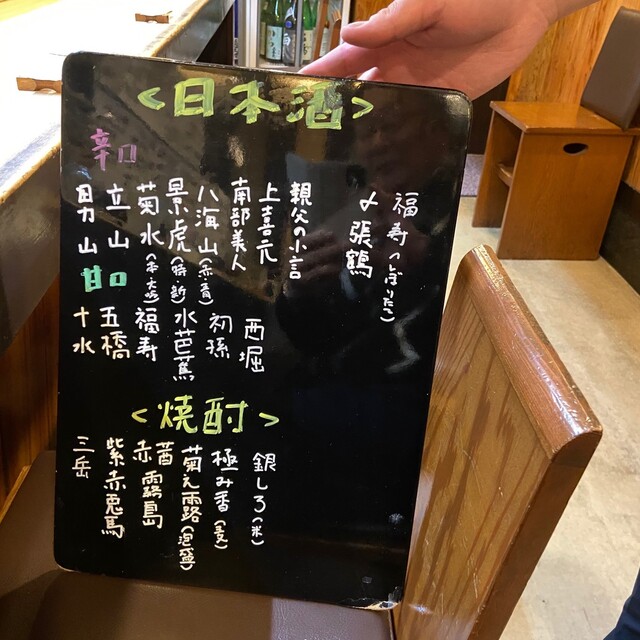 <日本酒>
福寿(しぼりたて)
〆張鶴
親父の小言
上喜元
南部美人
八海山(赤・青)
景虎(

菊水(
立山
男山
辛口
西堀
初孫
水芭蕉
福寿
五橋
十水
甘口
<焼酎>
銀しろ(米)
極み香(麦)
菊之露(泡盛)
茜霧島
赤
紫赤兎馬
三岳